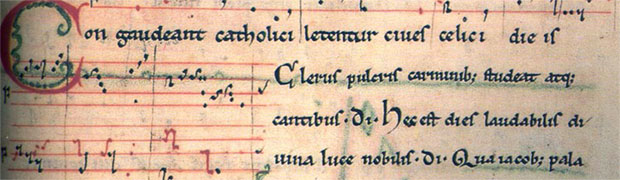 Con gaudeant catholici letentur ciues celici die is
Clerus pulcris carminib; studeat atq;
cantibus · di · Hec est dies laudabilis di
uina luce nobilis · di · Qua iacob; pala